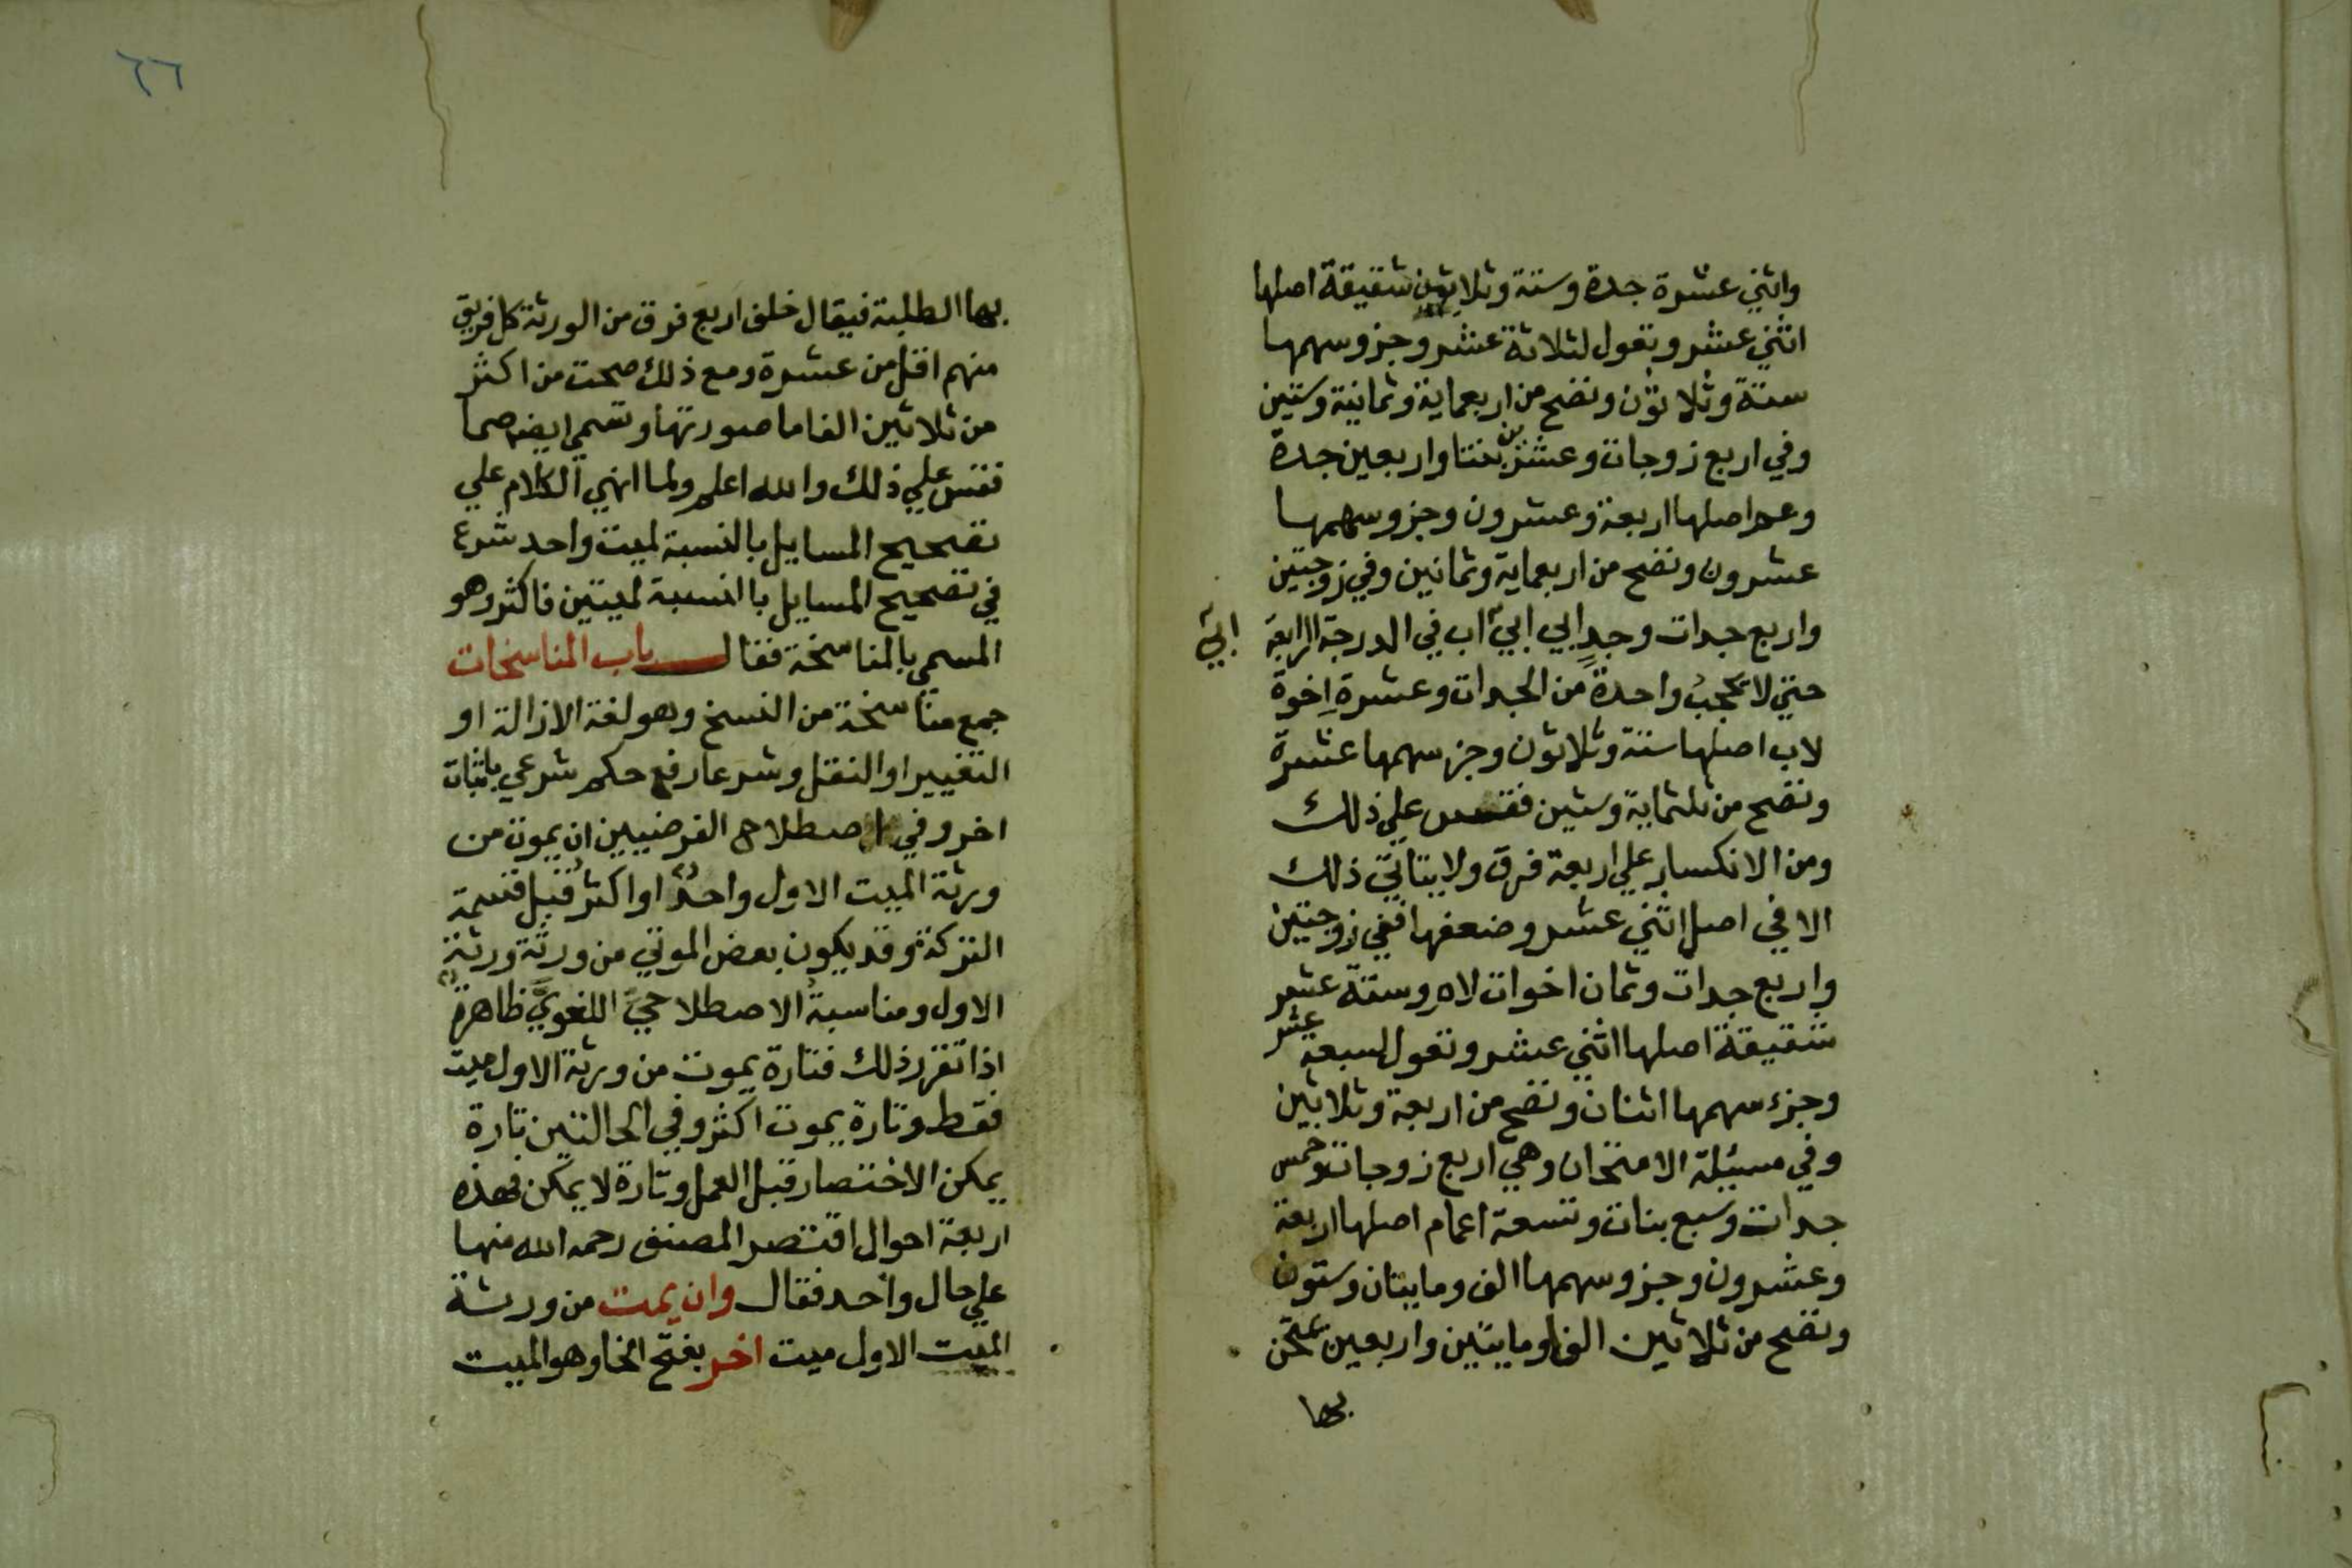 واثني عشرة جدة وستة وثلاثون شقيقة اصلها
اثني عشر وتعول لثلاثة عشر وجزو سهمها
ستة وثلاثون وتصح من اربعماية وثمانية وستين
وفي اربع زوجات وعشرين بنتا واربعين جدة
وعم اصلها اربعة وعشرون وجزو سهمها
عشرون وتصح من اربعماية وثمانين وفي زوجتين
واربع جدات وجد ابي ابي اب في الدرجة الرابعة
ابي
حتي لا يحجب واحدة من الجدات وعشرة اخوة
لاب اصلها ستة وثلاثون وجز سهمها عشرة
وتصح من ثلثماية وستين فقس علي ذلك
ومن الانكسار علي اربعة فرق ولا يتاتي ذلك
الا في اصل اثني عشر وضعفها ففي زوجتين
واربع جدات وثمان اخوات لام وستة عشر
شقيقة اصلها اثني عشر وتعول لسبعة عشر
وجزء سهمها اثنان وتصح من اربعة وثلاثين
وفي مسئلة الامتحان وهي اربع زوجات وخمس
جدات وسبع بنات وتسعة اعمام اصلها اربعة
وعشرون وجزو سهمها الف ومايتان وستون
وتصح من ثلاثين الفا ومايتين واربعين يمتحن
بها
٦٦
بها الطلبة فيقال خلف اربع فرق من الورثة كل فريق
منهم اقل من عشرة ومع ذلك صحت من اكثر
من ثلاثين الفا ما صورتها وتسمي ايضا صما
فقس علي ذلك والله اعلم ولما انهي الكلام علي
تصحيح المسايل بالنسبة لميت واحد شرع
في تصحيح المسايل بالنسبة لميتين فاكثر وهو
المسمي بالمناسخة فقال باب المناسخات
جمع مناسخة من النسخ وهو لغة الازالة او
التغيير او النقل وشرعا رفع حكم شرعي باثبات
اخر وفي اصطلاح الفرضيين ان يموت من
ورثة الميت الاول واحد او اكثر قبل قسمة
التركة وقد يكون بعض الموتي من ورثة ورثة
الاول ومناسبة الاصطلاحي اللغوي ظاهرة
اذا تقرر ذلك فتارة يموت من ورثة الاول ميت
فقط وتارة يموت اكثر وفي الحالتين تارة
يمكن الاختصار قبل العمل وتارة لا يمكن فهذه
اربعة احوال اقتصر المصنف رحمه الله منها
علي حال واحد فقال وان يمت من ورثة
الميت الاول ميت اخر بفتح الخا وهو الميت